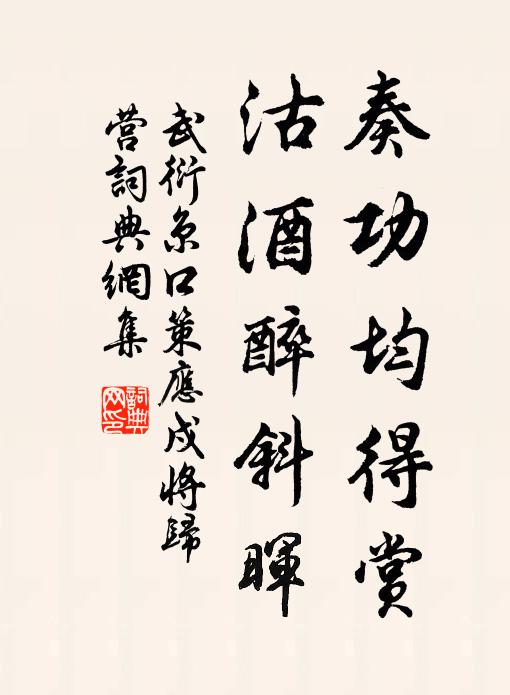 奏功均得赏
沽酒醉斜暉
武衍京口策應戍将歸
营詞典網集
詞典网印